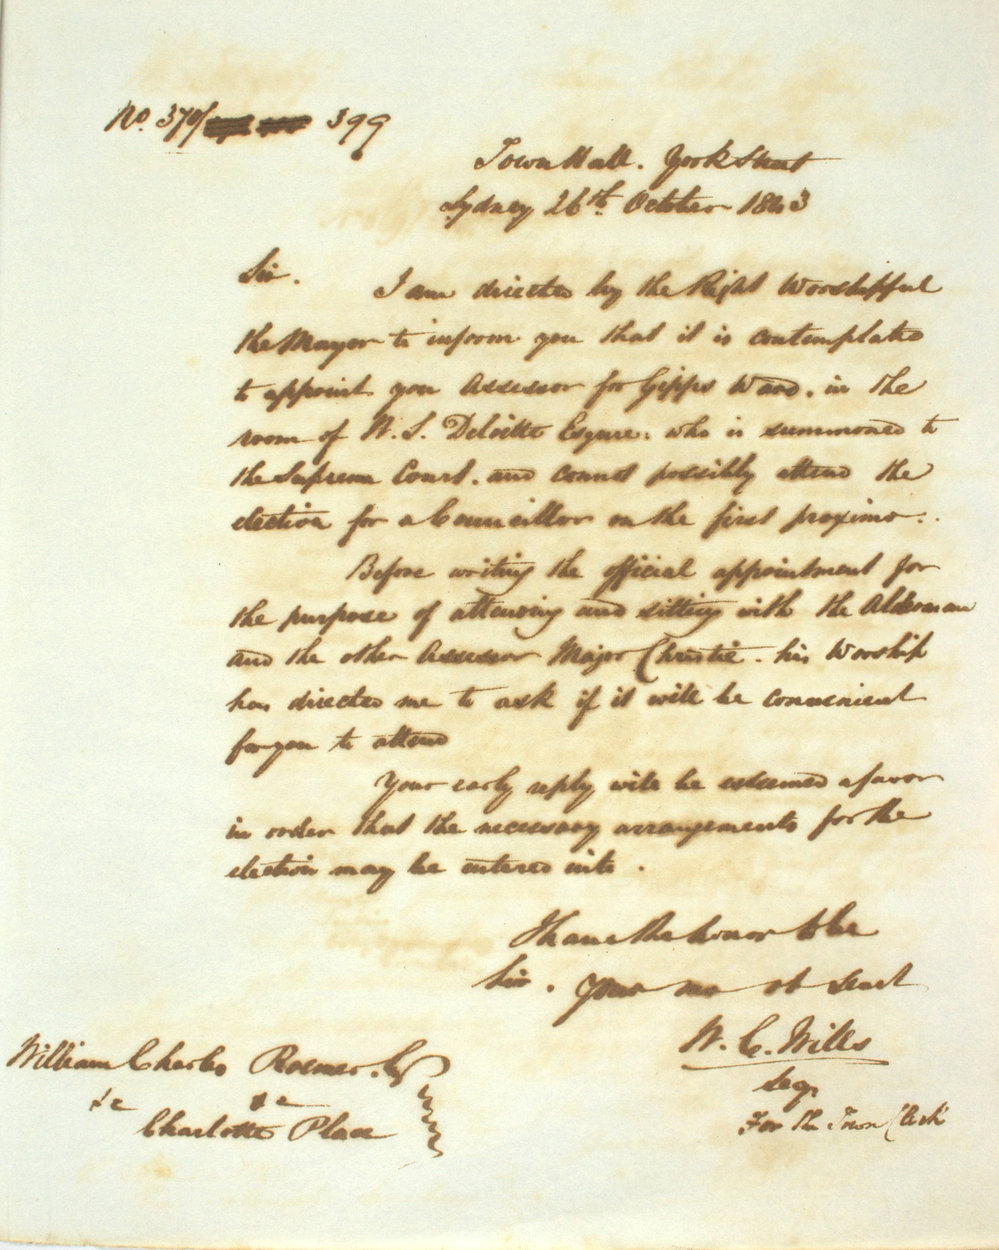 No. 370/ 399
Town Hall. York Street
Sydney 26th. October 1843
Sir. I am directed by the Right Worshipful
the Mayor to inform you that it is contemplated
to appoint you Assessor for Gipps Ward. in the
room of W. S. Deloitte Esquire. who is summoned to
the Supreme Court. and cannot possibly attend the
election for a Councillor on the first proximo.
Before writing the official appointment for
the purpose of attending and sitting with the Alderman
and the other Assessor Major Christie. his Worship
has directed me to ask if it will be convenient
for you to attend
Your early reply will be esteemed a favor
in order that the necessary arrangements for the
election may be entered into.
I have the honor to be
Sir. Your mo ob Servt
W. C. Wills
For the Town Clerk
William Charles Roemer. Esq
&c &c
Charlotte Place